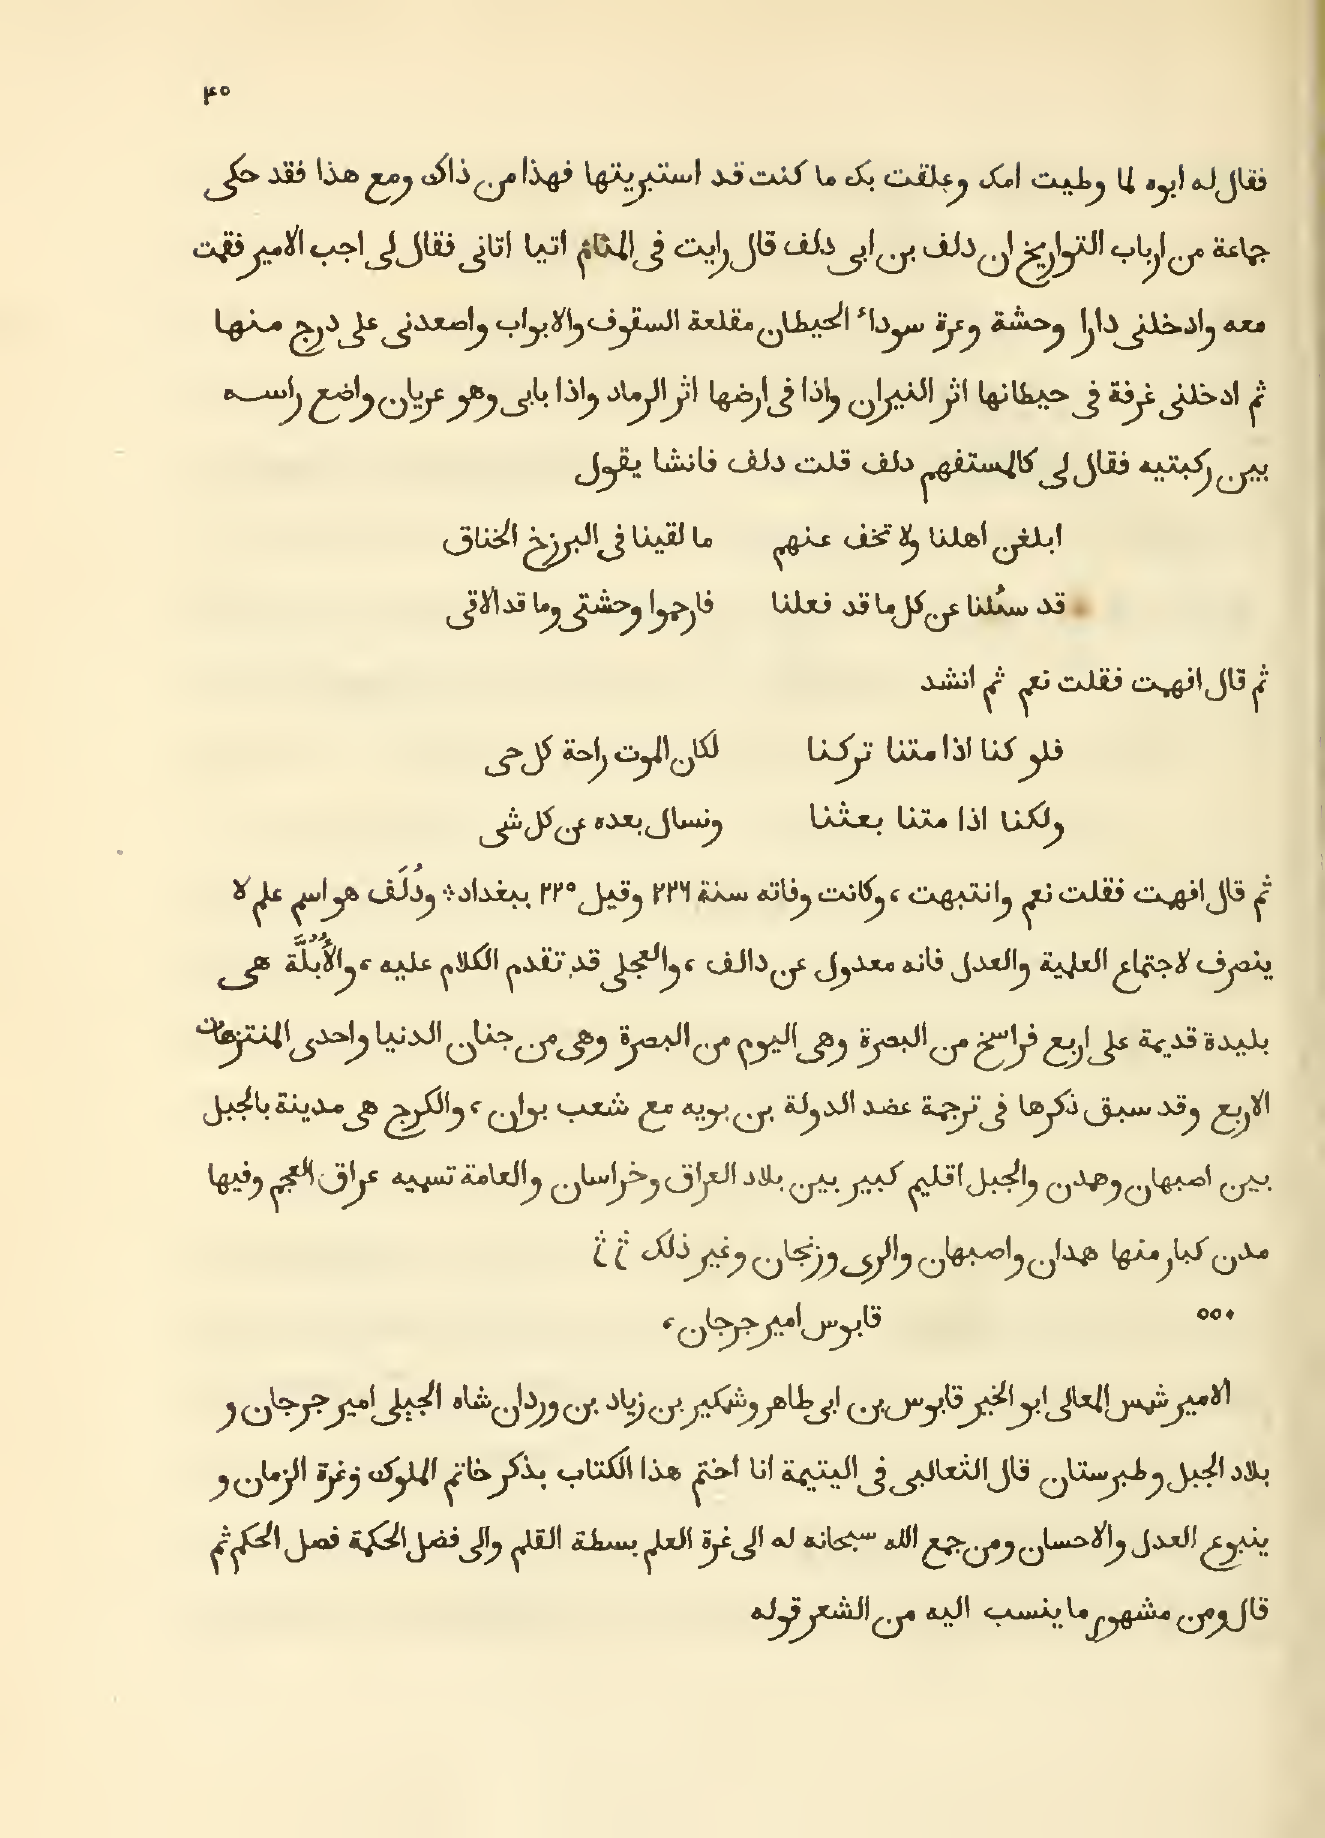 ۴۰
فقال له ابوه لما وطيت امك وعلقت بك ما كنت قد استبريتها فهذا من ذاك ومع هذا فقد حكى
جماعة من ارباب التواريخ ان دلف بن ابى دلف قال رايت فى المنام اتيا اتانى فقال لى اجب الامير فقمت
معه وادخلنى دارا وحشة وعرة سوداء الحيطان مقلعة السقوف والابواب واصعدنى على درج منها
ثم ادخلنى غرفة فى حيطانها اثر النيران واذا فى ارضها اثر الرماد واذا بابى وهو عريان واضع راسه
بين ركبتيه فقال لى كالمستفهم دلف قلت دلف فانشا يقول
ابلغن اهلنا ولا تخف عنهم ما لقينا فى البرزخ الخناق
قد سئلنا عن كل ما قد فعلنا فارحموا وحشتى وما قد الاقى
ثم قال افهمت فقلت نعم ثم انشد
فلو كنا اذا متنا تركنا لكان الموت راحة كل حى
ولكنا اذا متنا بعثنا ونسال بعده عن كل شى
ثم قال افهمت فقلت نعم وانتبهت، وكانت وفاته سنة ٢٢٦ وقيل ٢٢٥ ببغداد؛ ودُلَف هو اسم علم لا
ينصرف لاجتماع العلمية والعدل فانه معدول عن دالف، والعجلى قد تقدم الكلام عليه، والأُبُلَّة هى
بليدة قديمة على اربع فراسخ من البصرة وهى اليوم من البصرة وهى من جنان الدنيا واحدى المنتزهات
الاربع وقد سبق ذكرها فى ترجمة عضد الدولة بن بويه مع شعب بوان، والكرج هى مدينة بالجبل
بين اصبهان وهمدن والجبل اقليم كبير بين بلاد العراق وخراسان والعامة تسميه عراق العجم وفيها
مدن كبار منها همدان واصبهان والرى وزنجان وغير ذلك
٥٥٠ قابوس امير جرجان،
الامير شمس المعالى ابو الخير قابوس بن ابى طاهر وشمكير بن زياد بن وردان شاه الجيلى امير جرجان و
بلاد الجبل وطبرستان قال الثعالبى فى اليتيمة انا اختم هذا الكتاب بذكر خاتم الملوك وغرة الزمان و
ينبوع العدل والاحسان ومن جمع الله سبحانه له الى غرة العلم بسطة القلم والى فضل الحكمة فصل الحكم ثم
قال ومن مشهور ما ينسب اليه من الشعر قوله